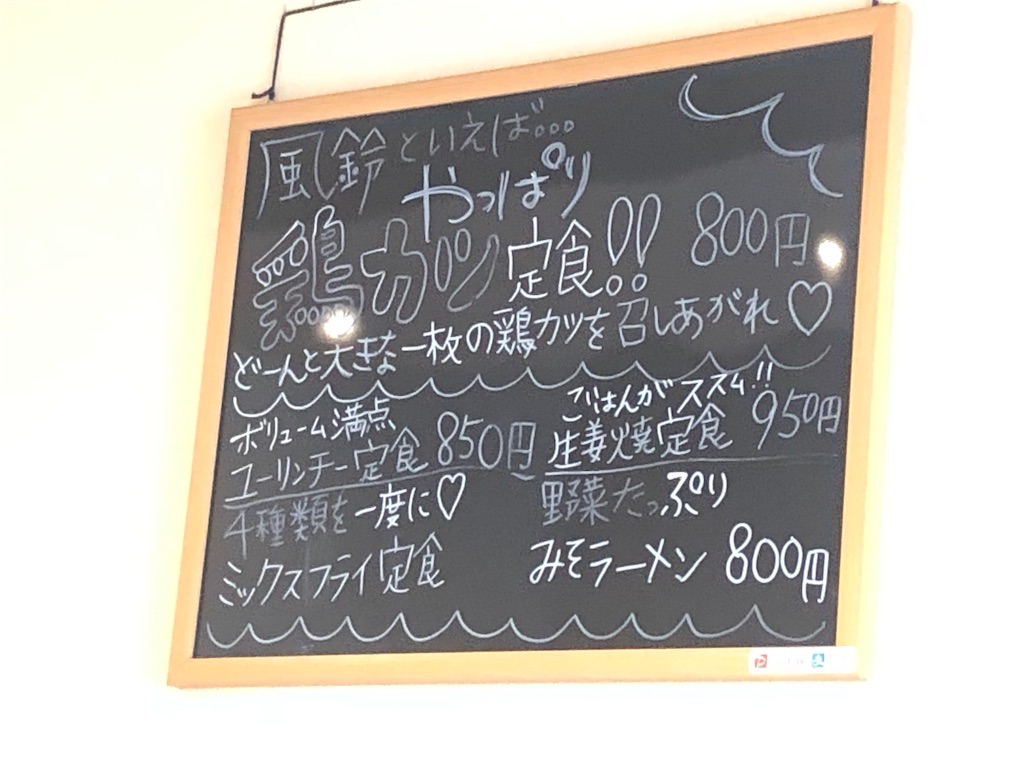 風鈴といえば...
やっぱり
鶏カツ定食!! 800円
どーんと大きな一枚の鶏カツを召しあがれ♡
ボリューム満点
ユーリンチー定食 850円
ごはんがススム!!
生姜焼定食 950円
4種類を一度に♡
ミックスフライ定食
野菜たっぷり
みそラーメン 800円